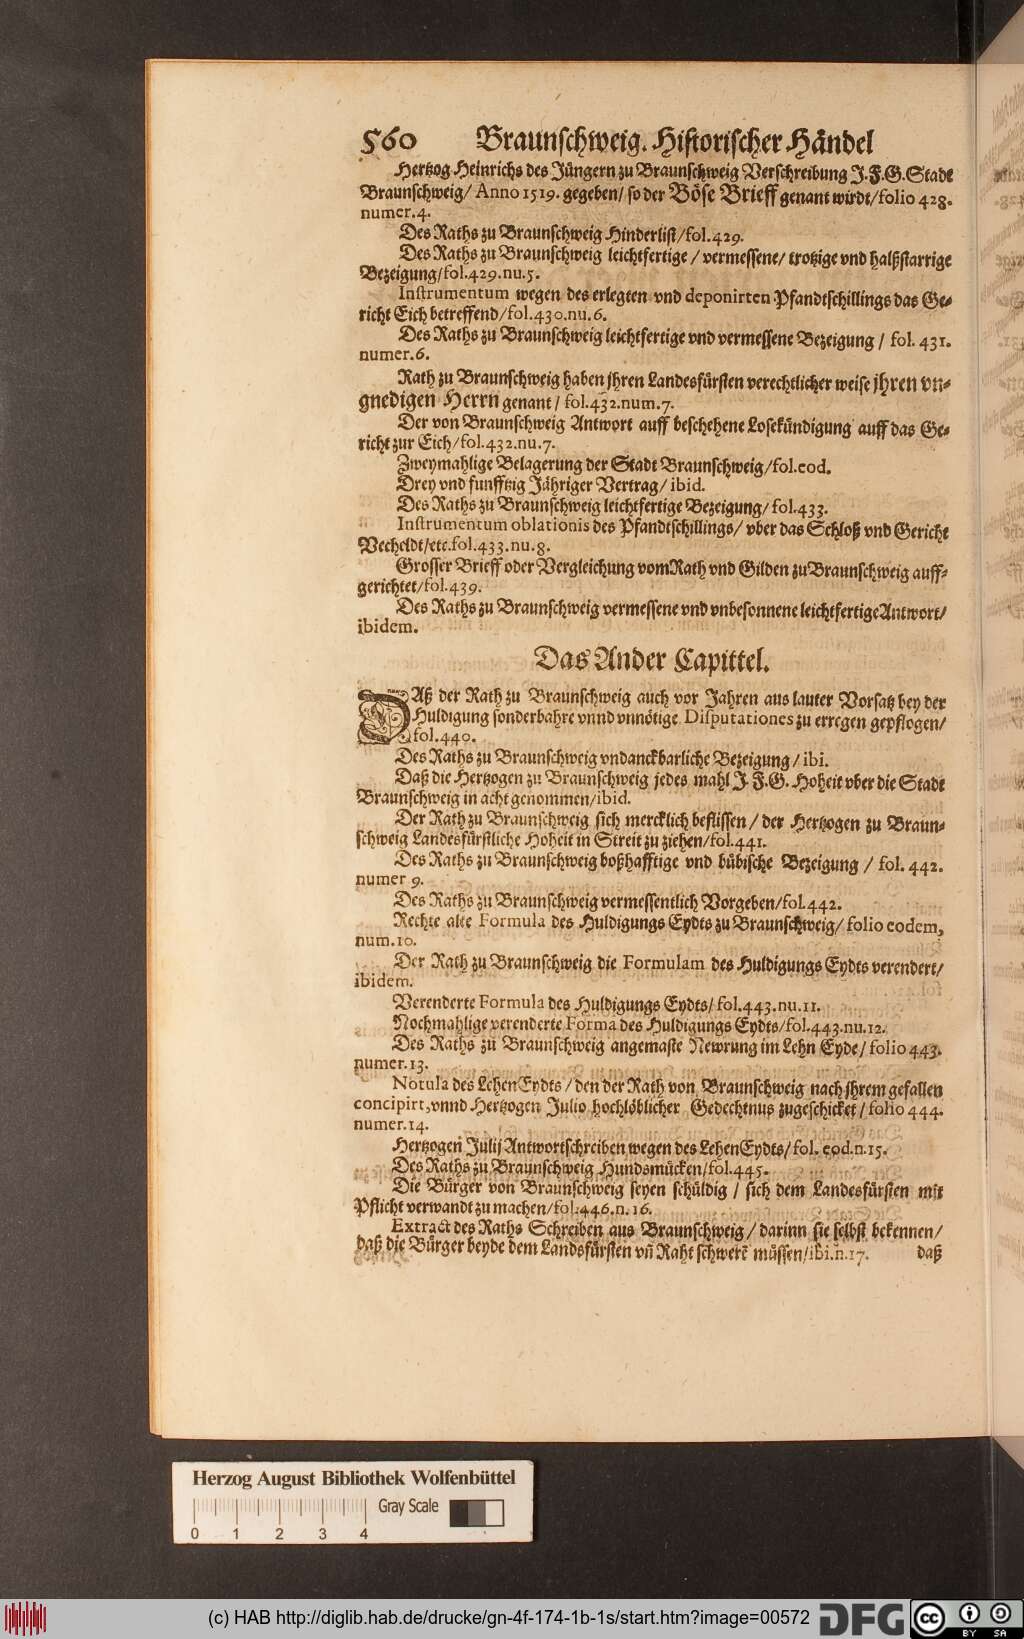 560 Braunschweig. Historischer Händel
Hertzog Heinrichs des Jüngern zu Braunschweig Verschreibung J.F.G. Stadt
Braunschweig/ Anno 1519. gegeben/ so der Böse Brieff genant wirdt/folio 428.
numer.4.
Des Raths zu Braunschweig Hinderlist/fol.429.
Des Raths zu Braunschweig leichtfertige / vermessene/ trotzige vnd halßstarrige
Bezeigung/fol.429.nu.5.
Instrumentum wegen des erlegten vnd deponirten Pfandtschillings das Ge-
richt Eich betreffend/fol.430.nu.6.
Des Raths zu Braunschweig leichtfertige vnd vermessene Bezeigung / fol. 431.
numer.6.
Rath zu Braunschweig haben jhren Landesfürsten verechtlicher weise jhren vn-
gnedigen Herrn genant / fol.432.num.7.
Der von Braunschweig Antwort auff beschehene Losekündigung auff das Ge-
richt zur Eich/fol.432.nu.7.
Zweymahlige Belagerung der Stadt Braunschweig/fol.eod.
Drey vnd funfftzig Jähriger Vertrag/ ibid.
Des Raths zu Braunschweig leichtfertige Bezeigung/ fol.433.
Instrumentum oblationis des Pfandtschillings/ vber das Schloß vnd Gericht
Vecheldt/etc.fol.433.nu.8.
Grosser Brieff oder Vergleichung vom Rath vnd Gilden zu Braunschweig auff-
gerichtet/fol.439.
Des Raths zu Braunschweig vermessene vnd vnbesonnene leichtfertige Antwort/
ibidem.
Das Ander Capittel.
DAß der Rath zu Braunschweig auch vor Jahren aus lauter Vorsatz bey der
Huldigung sonderbahre vnnd vnnötige Disputationes zu erregen gepflogen/
fol.440.
Des Raths zu Braunschweig vndanckbarliche Bezeigung / ibi.
Daß die Hertzogen zu Braunschweig jedes mahl J.F.G. Hoheit vber die Stadt
Braunschweig in acht genommen/ibid.
Der Rath zu Braunschweig sich mercklich beflissen / der Hertzogen zu Braun-
schweig Landesfürstliche Hoheit in Streit zu ziehen/fol.441.
Des Raths zu Braunschweig boßhafftige vnd bübische Bezeigung / fol. 442.
numer 9.
Des Raths zu Braunschweig vermessentlich Vorgeben/fol.442.
Rechte alte Formula des Huldigungs Eydts zu Braunschweig/ folio eodem,
num.10.
Der Rath zu Braunschweig die Formulam des Huldigungs Eydts verendert/
ibidem.
Verenderte Formula des Huldigungs Eydts/ fol.443.nu.11.
Nochmahlige verenderte Forma des Huldigungs Eydts/fol.443.nu.12.
Des Raths zu Braunschweig angemaste Newrung im Lehn Eyde/ folio 443.
numer.13.
Notula des Lehen Eydts / den der Rath von Braunschweig nach jhrem gefallen
concipirt, vnnd Hertzogen Julio hochlöblicher Gedechtnus zugeschicket / folio 444.
numer.14.
Hertzogen Julij Antwortschreiben wegen des Lehen Eydts/ fol. eod.n.15.
Des Raths zu Braunschweig Hundsmücken/fol.445.
Die Bürger von Braunschweig seyen schüldig / sich dem Landesfürsten mit
Pflicht verwandt zu machen/fol.446.n.16.
Extract des Raths Schreiben aus Braunschweig / darinn sie selbst bekennen/
daß die Bürger beyde dem Landsfürsten vñ Raht schwerẽ müssen/ibi.n.17.
daß
Herzog August Bibliothek Wolfenbüttel
Gray Scale
0 1 2 3 4
(c) HAB http://diglib.hab.de/drucke/gn-4f-174-1b-1s/start.htm?image=00572
DFG
cc BY SA